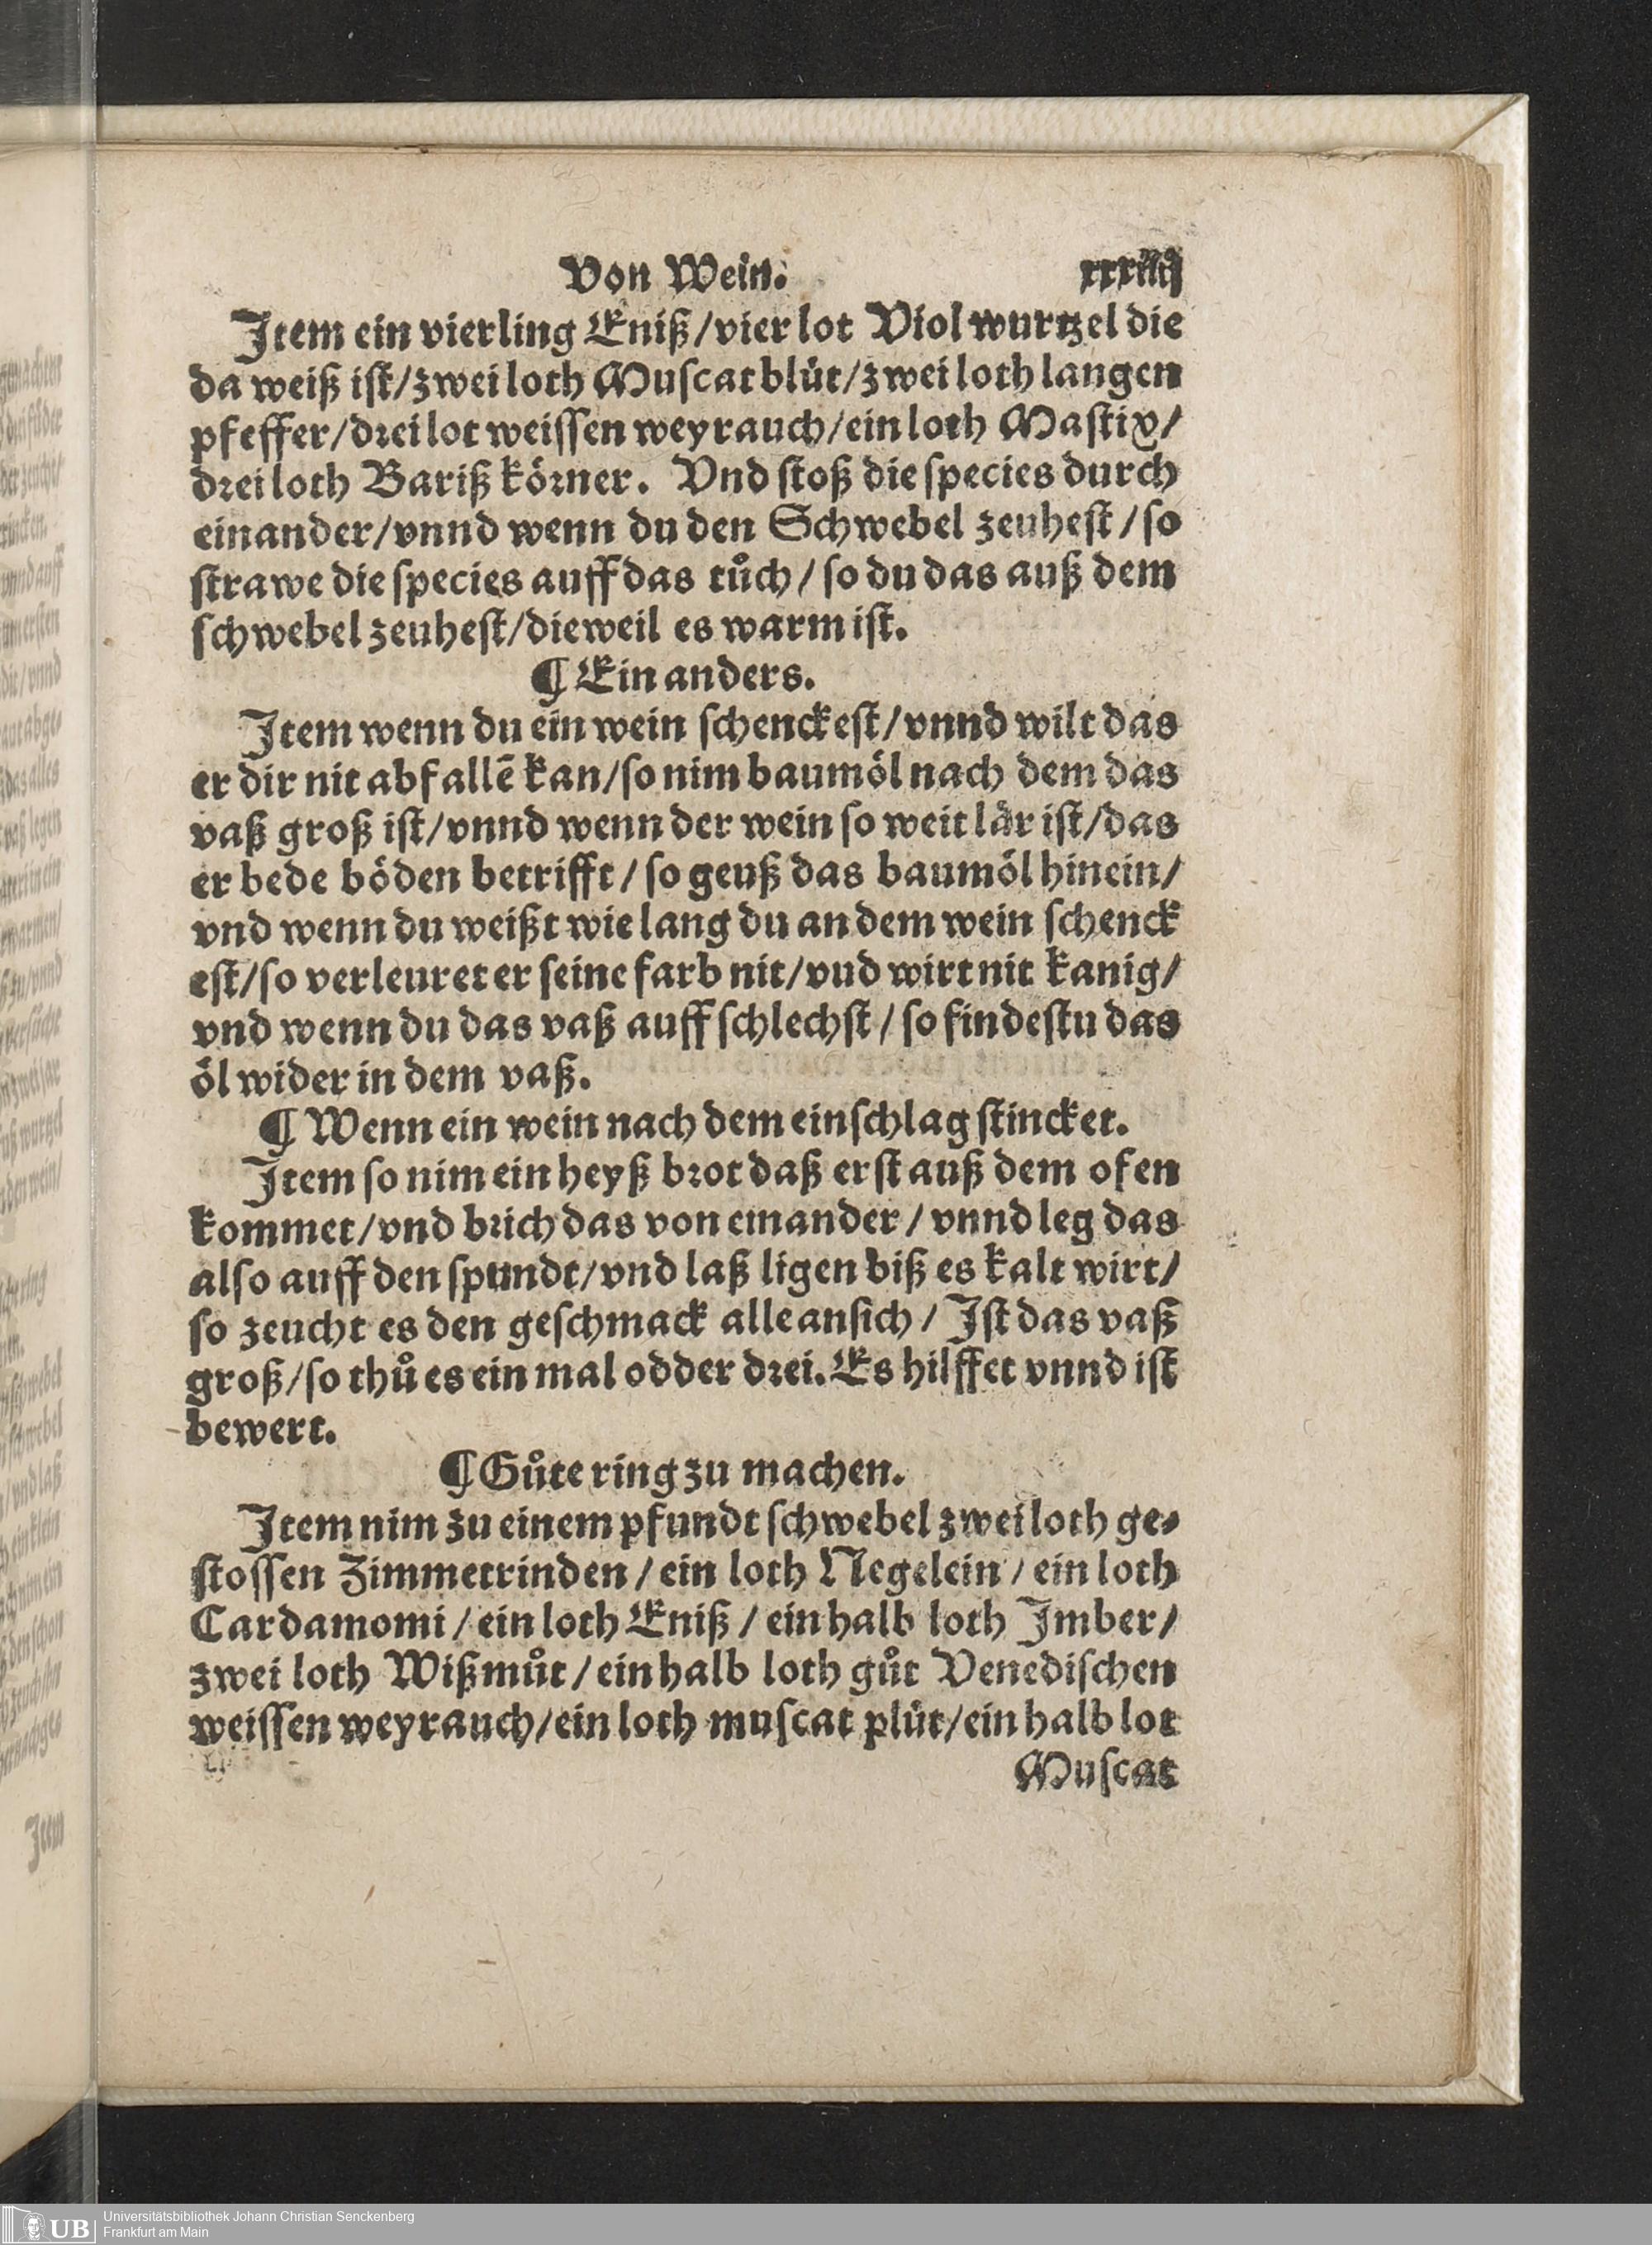 Von Wein.
Item ein vierling Eniß/vier lot Violwurtzel die
da weiß ist/zwei loth Muscatblůt/zwei loth langen
pfeffer/drei lot weissen weyrauch/ein loth Mastix/
drei loth Bariß körner. Vnd stoß die species durch
einander/vnnd wenn du den Schwebel zeuhest/so
strawe die species auff das tůch/so du das auß dem
schwebel zeuhest/dieweil es warm ist.
¶ Ein anders.
Item wenn du ein wein schenckest/vnnd wilt das
er dir nit abfallẽ kan/so nim baumöl nach dem das
vaß groß ist/vnnd wenn der wein so weit lär ist/das
er bede böden betrifft/so geuß das baumöl hinein/
vnd wenn du weißt wie lang du an dem wein schenck
est/so verleuret er seine farb nit/vud wirt nit kanig/
vnd wenn du das vaß auff schlechst/so findestu das
öl wider in dem vaß.
¶ Wenn ein wein nach dem einschlag stincket.
Item so nim ein heyß brot daß erst auß dem ofen
kommet/vnd brich das von einander/vnnd leg das
also auff den spundt/vnd laß ligen biß es kalt wirt/
so zeucht es den geschmack alle ansich/Ist das vaß
groß/so thů es ein mal odder drei. Es hilffet vnnd ist
bewert.
¶ Gůte ring zu machen.
Item nim zu einem pfundt schwebel zwei loth ge-
stossen Zimmetrinden/ein loth Negelein/ein loth
Cardamomi/ein loth Eniß/ein halb loth Imber/
zwei loth Wißmůt/ein halb loth gůt Venedischen
weissen weyrauch/ein loth muscat plůt/ein halb lot
Muscat
Item
UB
Universitätsbibliothek Johann Christian Senckenberg
Frankfurt am Main